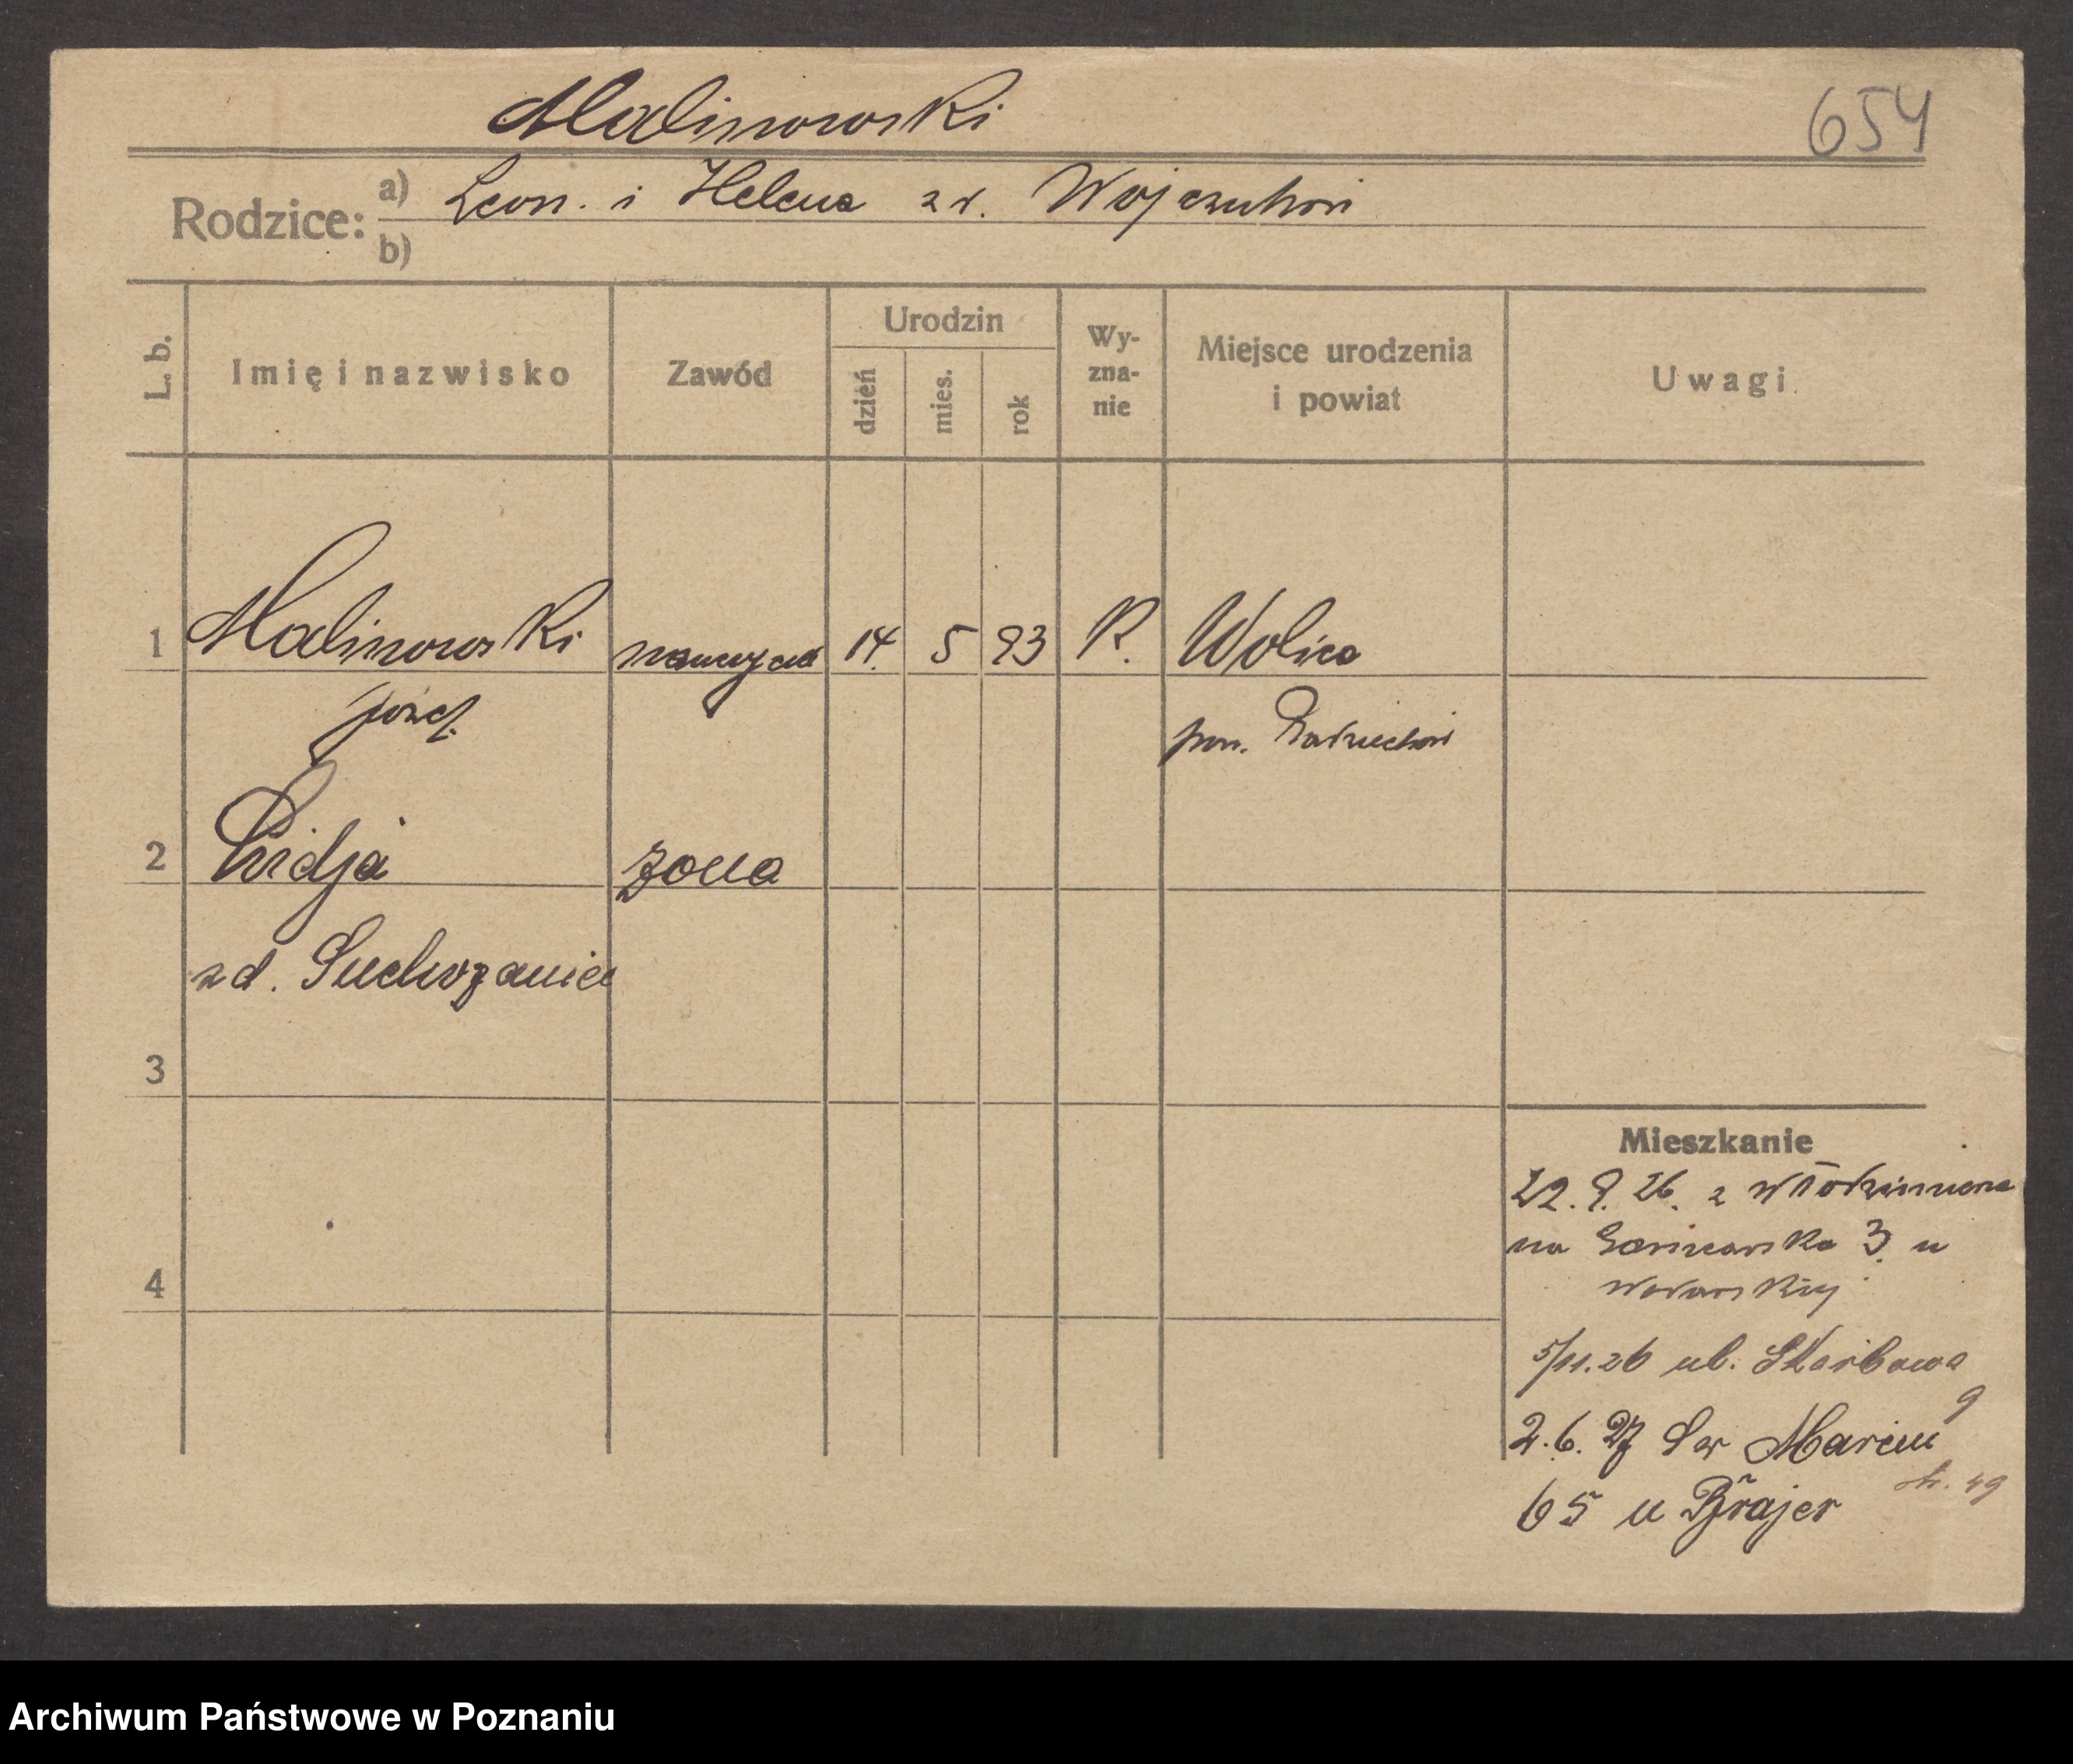 Malinowski
654
Rodzice:
a) Leon. i Helena zd.
b)
L. b.
Imię i nazwisko
Zawód
Urodzin
dzień
mies.
rok
Wy-
zna-
nie
Miejsce urodzenia
i powiat
Uwagi
1 Malinowski nauczyciel 14. 5 93 R. Wolica
Józef. pow.
2 Lidja żona
zd.
3
4
Mieszkanie
22. 9. 26. z Włodzimierza
na 3. u
5/11.26 ul. Skarbowa
9
2. 6. 27 Sw Marcin
65 u Brajer
str. 49
Archiwum Państwowe w Poznaniu